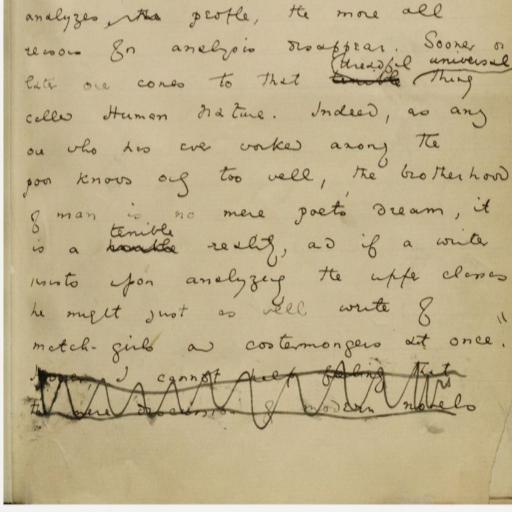 analyzes people, the more all
reasons for analysis disappear. Sooner or
dreadful universal
later one comes to that terrible thing
called Human nature. Indeed, as any
one who has ever worked among the
poor knows only too well, the brotherhood
of man is no mere poet's dream, it
terrible
is a reality, and if a writer
insists upon analyzing the upper classes
he might just as well write of
match-girls and costermongers at once."
I cannot help feeling that
the mere discussion of modern novels